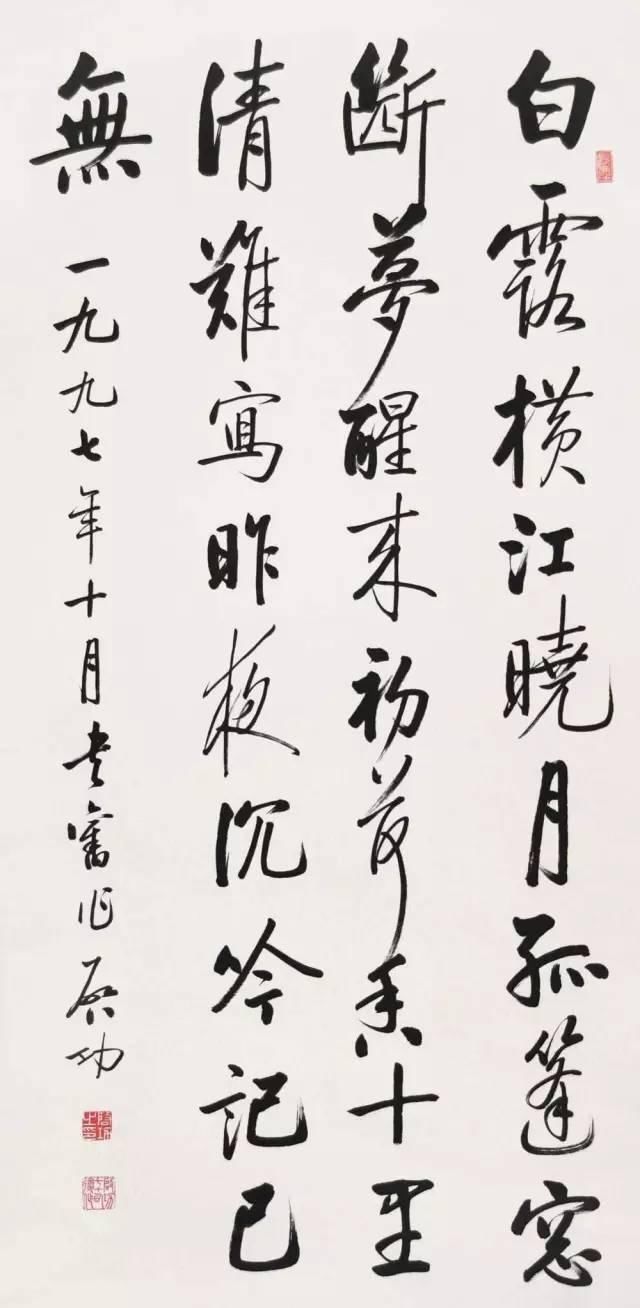 白露横江曉月孤篷窓
斷夢醒来初荷香十里
清難寫昨夜沉吟記已
無
一九九七年十月書舊作 啓功